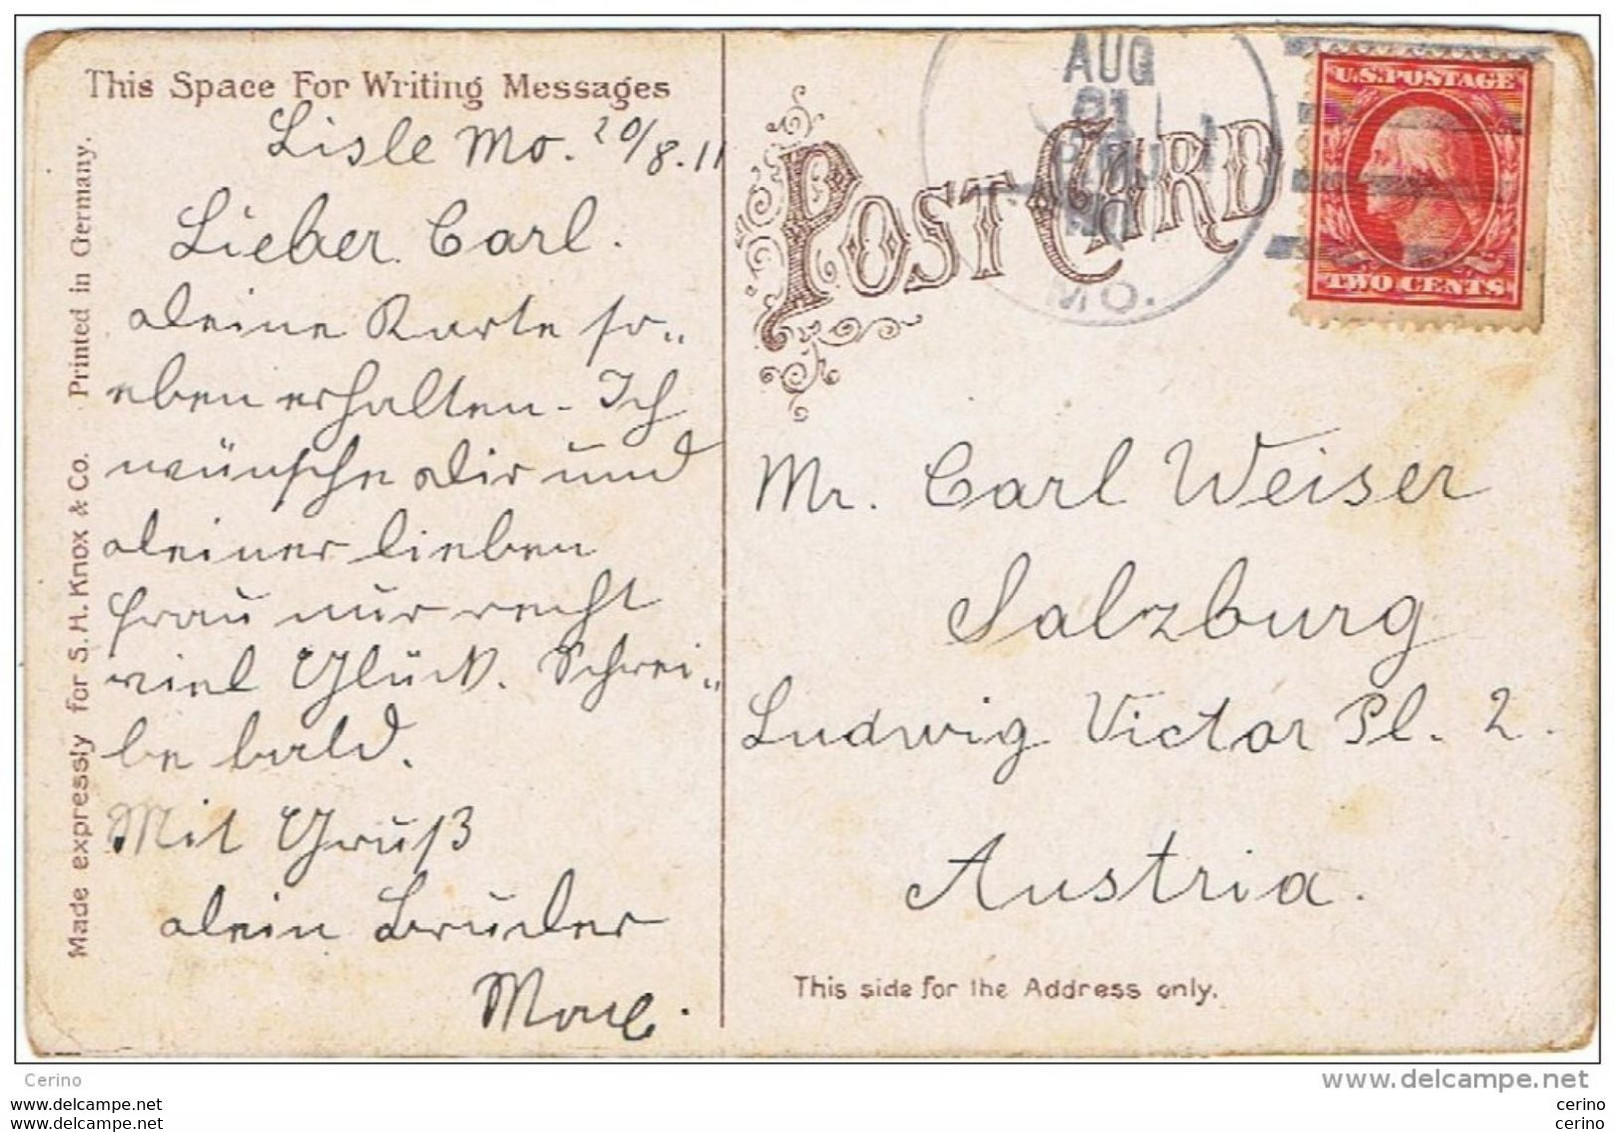 This Space For Writing Messages
Lisle Mo. 20/8.11
Lieber Carl.
deine Karte so„
eben erhalten - Ich
wünsche dir und
deiner lieben
Frau nur recht
viel Glück. Schrei„
be bald.
Mit Gruß
dein Bruder
Made expressly for S.H. Knox & Co. Printed in Germany.
POST CARD
AUG
MO.
U.S. POSTAGE
TWO CENTS
Mr. Carl Weiser
Salzburg
Ludwig Victor Pl. 2.
Austria.
This side for the Address only.
Cerino
www.delcampe.net
www.lodecom.net cerino
www.lodecom.net cerino